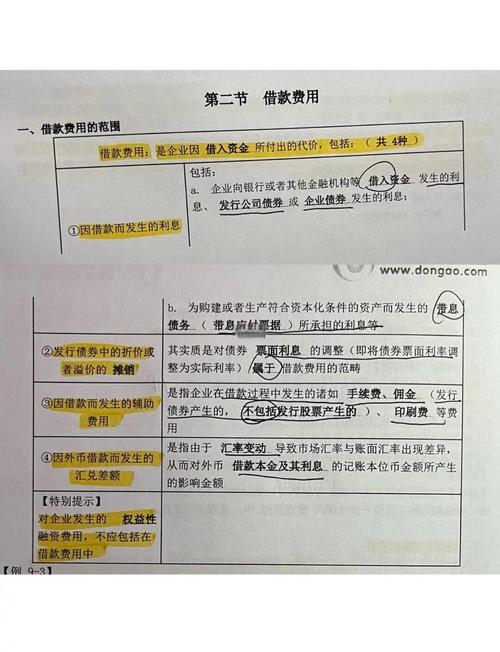 第二节 借款费用
一、借款费用的范围
借款费用：是企业因 借入资金 所付出的代价，包括：（ 共 4种 ）
①因借款而发生的利息
包括：
a. 企业向银行或者其他金融机构等 借入资金 发生的利
息、 发行公司债券 或 企业债券 发生的利息；
www.dongao.com
b. 为购建或者生产符合资本化条件的资产而发生的 带息
债务（ 带息应付票据 ）所承担的利息等
②发行债券中的折价或
者溢价的 摊销
其实质是对债券 票面利息 的调整（即将债券票面利率调
整为实际利率） 属于 借款费用的范畴
③因借款而发生的辅助
费用
是指企业在借款过程中发生的诸如 手续费、佣金（发行
债券产生的， 不包括发行股票产生的 ）、 印刷费 等费
用
④因外币借款而发生的
汇兑差额
是指由于 汇率变动 导致市场汇率与账面汇率出现差异，
从而对外币 借款本金及其利息 的记账本位币金额所产生
的影响金额
【特别提示】
对企业发生的 权益性
融资费用，不应包括在
借款费用中
【例 9-3】